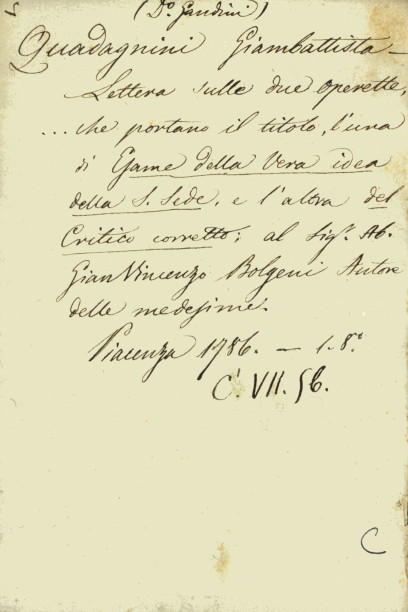 (Do. Gandini)
Guadagnini Giambattista —
Lettera sulle due operette,
... che portano il titolo, l'una
di Esame della Vera idea
della S. Sede, e l'altra del
Critico corretto; al Sigr. Ab.
Gian Vincenzo Bolgeni Autore
delle medesime.
Piacenza 1786. — 1. 8.°
C. VII. 56.
C